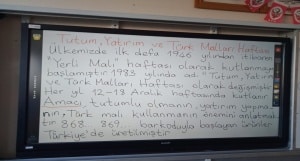 Tutum, Yatırım ve Türk Malları Haftası
Ülkemizde ilk defa 1946 yılından itibaren
"Yerli Malı" haftası olarak kutlanmaya
başlamıştır 1983 yılında adı "Tutum, Yatırım
ve Türk Malları Haftası olarak değişmiştir.
Her yıl 12-18 Aralık haftasında kutlanır.
Amacı, tutumlu olmanın, yatırım yapma
nın, Türk malı kullanmanın önemini anlatmak
tır. 868 - 869 barkoduyla başlayan ürünler
Türkiye'de üretilmiştir.